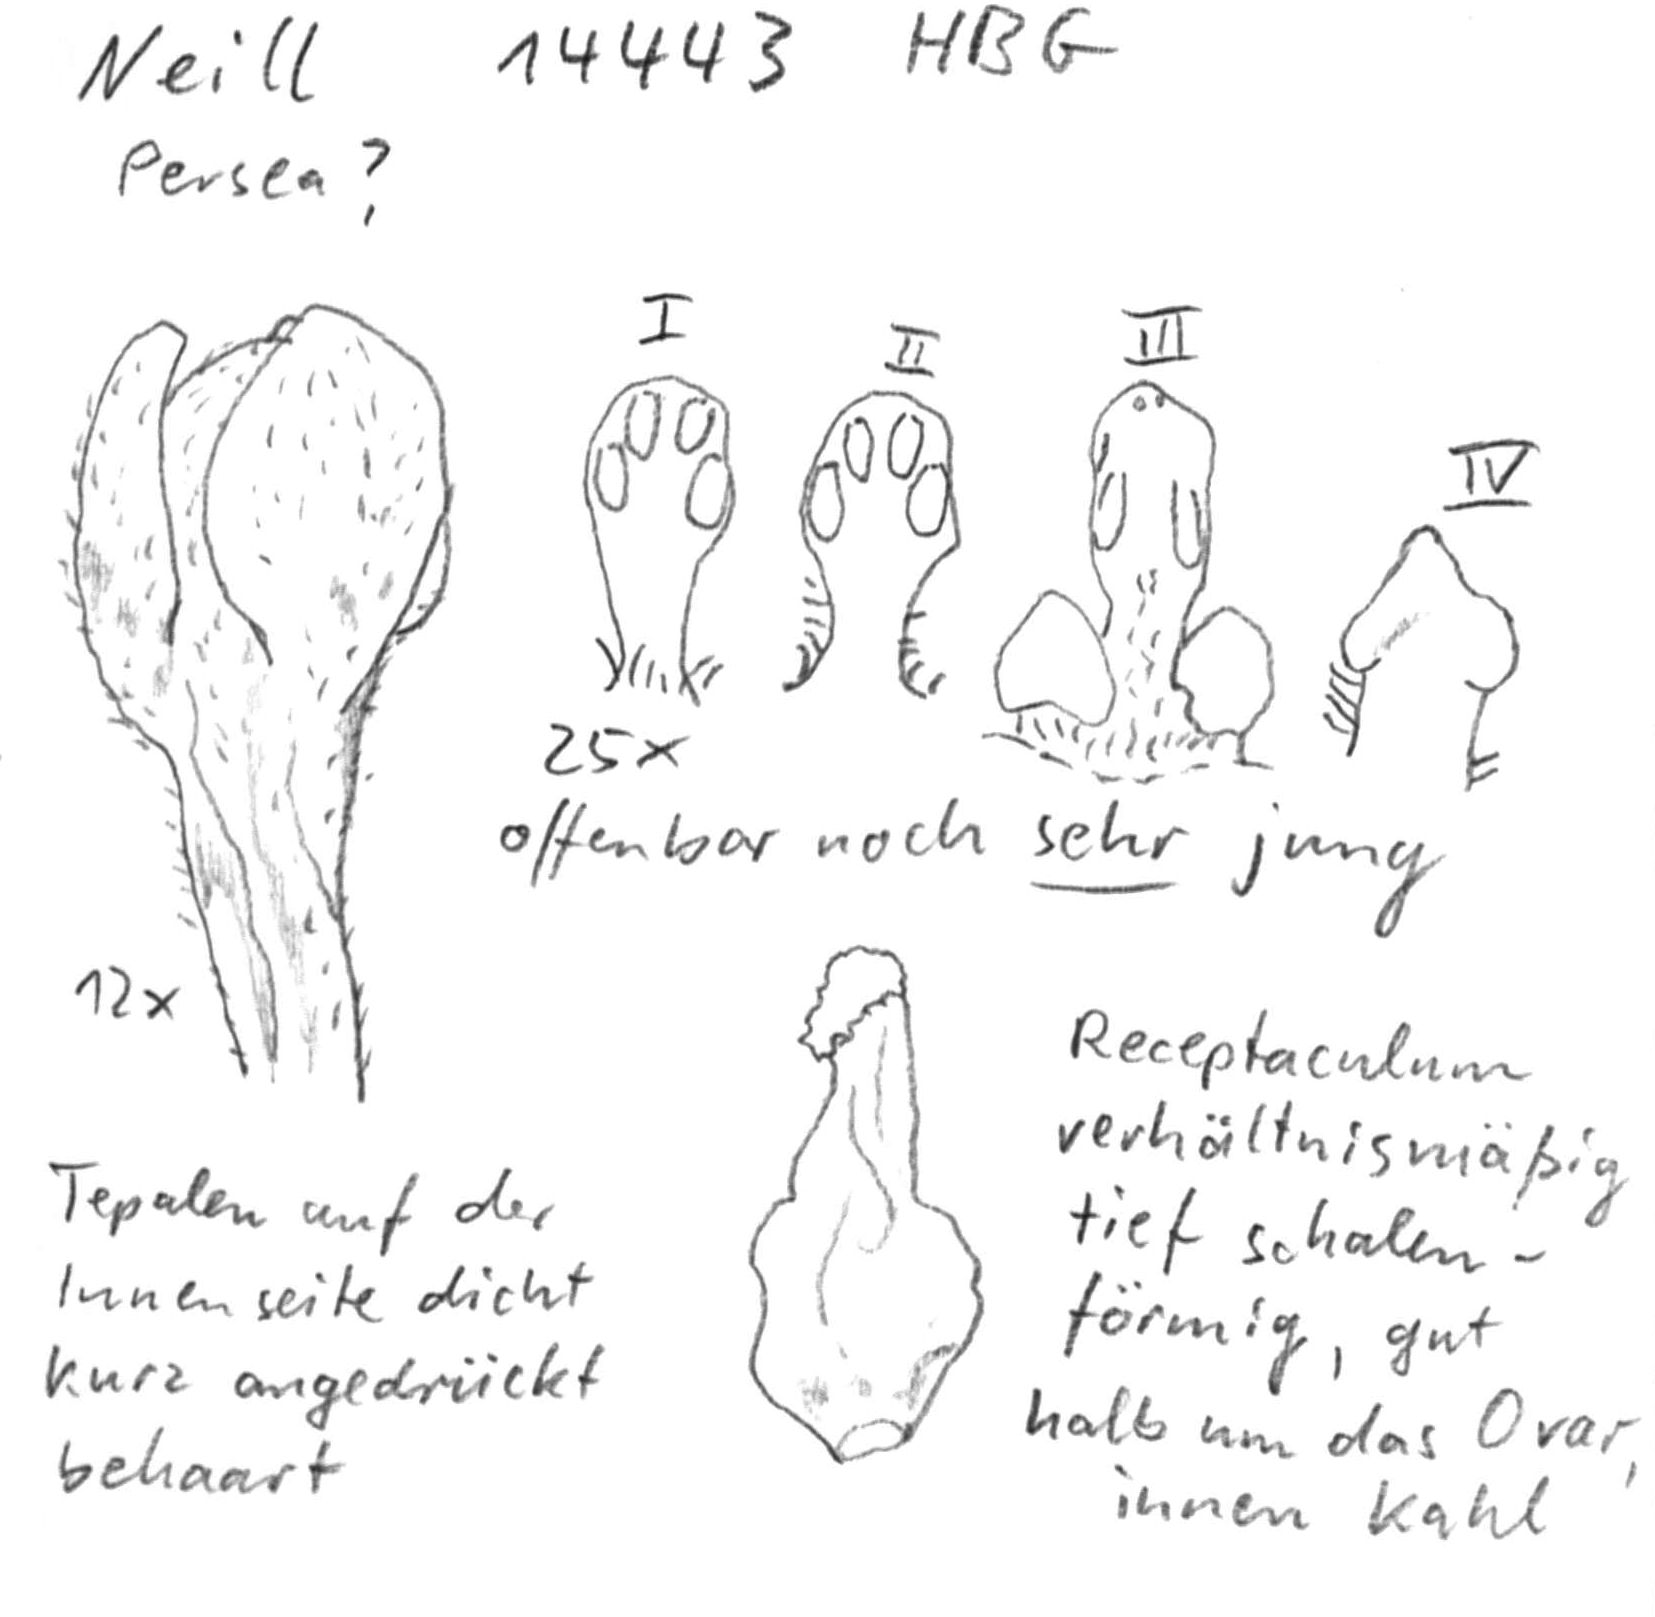 Neill 14443 HBG
Persea?
I
II
III
IV
25x
offenbar noch sehr jung
12x
Tepalen auf der
Innenseite dicht
kurz angedrückt
behaart
Receptaculum
verhältnismäßig
tief schalen-
förmig, gut
halb um das Ovar,
innen kahl